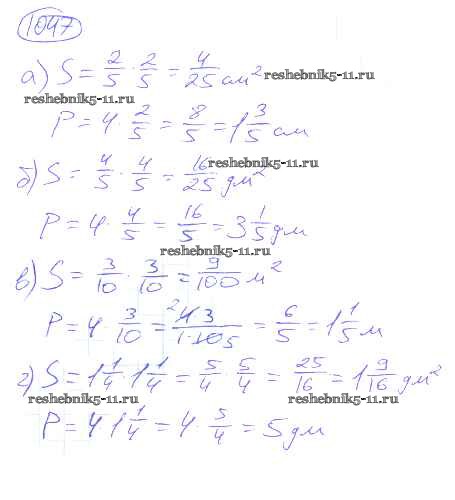 1047
а) S = 2/5 · 2/5 = 4/25 см²
reshebnik5-11.ru
reshebnik5-11.ru
P = 4 · 2/5 = 8/5 = 1 3/5 см
б) S = 4/5 · 4/5 = 16/25 дм²
reshebnik5-11.ru
P = 4 · 4/5 = 16/5 = 3 1/5 дм
reshebnik5-11.ru
в) S = 3/10 · 3/10 = 9/100 м²
P = 4 · 3/10 = ²4 · 3/1 · 10 5 = 6/5 = 1 1/5 м
г) S = 1 1/4 · 1 1/4 = 5/4 · 5/4 = 25/16 = 1 9/16 дм²
reshebnik5-11.ru
reshebnik5-11.ru
P = 4 · 1 1/4 = 4 · 5/4 = 5 дм